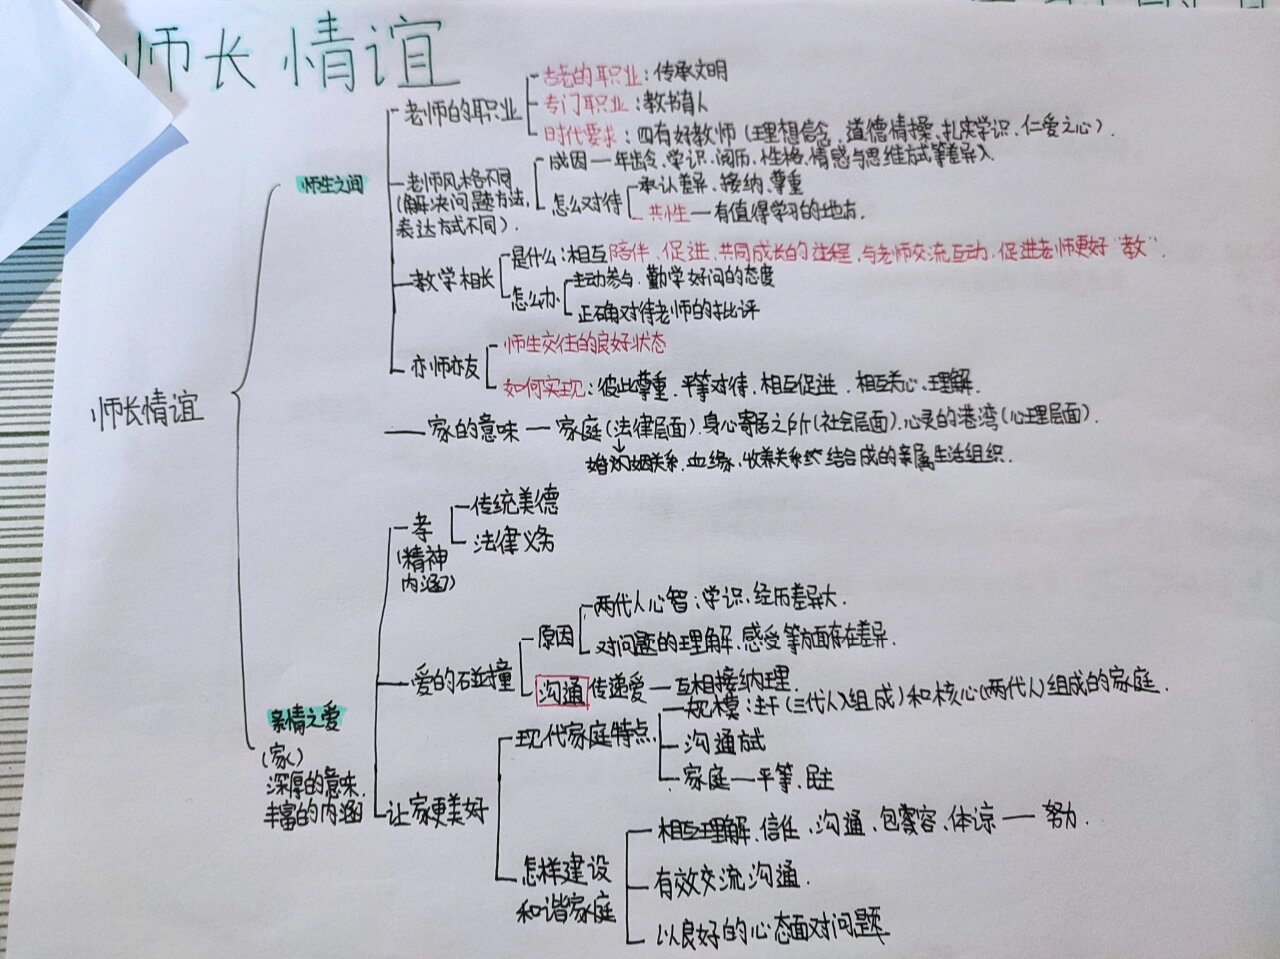 师长情谊
老师的职业
古老的职业：传承文明
专门职业：教书育人
时代要求：四有好教师（理想信念、道德情操、扎实学识、仁爱之心）.
师生之间
老师风格不同
（解决问题方法,
表达方式不同）.
成因—年龄、学识、阅历、性格、情感与思维方式等差异
怎么对待
承认差异、接纳、尊重
共性—有值得学习的地方.
教学相长
是什么：相互陪伴、促进、共同成长的过程、与老师交流互动、促进老师更好“教”.
怎么办
主动参与、勤学好问的态度
正确对待老师的批评
亦师亦友
师生交往的良好状态
如何实现：彼此尊重、平等对待、相互促进、相互关心、理解.
师长情谊
家的意味—家庭（法律层面）.身心寄居之所（社会层面）.心灵的港湾（心理层面）.
婚姻关系、血缘、收养关系 结合成的亲属生活组织.
孝
（精神
内涵）
传统美德
法律义务
爱的碰撞
原因
两代人心智；学识、经历差异大.
对问题的理解、感受等方面存在差异.
沟通传递爱—互相接纳理.
亲情之爱
（家）
深厚的意味.
丰富的内涵
让家更美好
现代家庭特点
规模：主干（三代人）组成）和核心（两代人）组成的家庭.
沟通方式
家庭—平等、民主
怎样建设
和谐家庭
相互理解、信任、沟通、包容、体谅—努力.
有效交流沟通.
以良好的心态面对问题